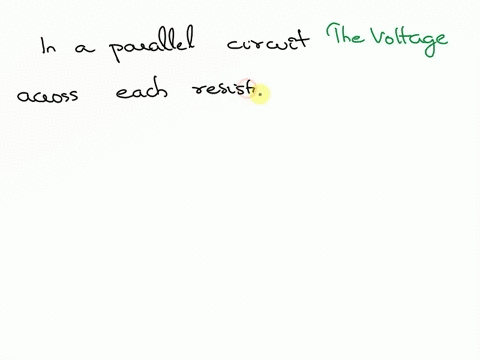 In a parallel circuit The Voltage
across each resist